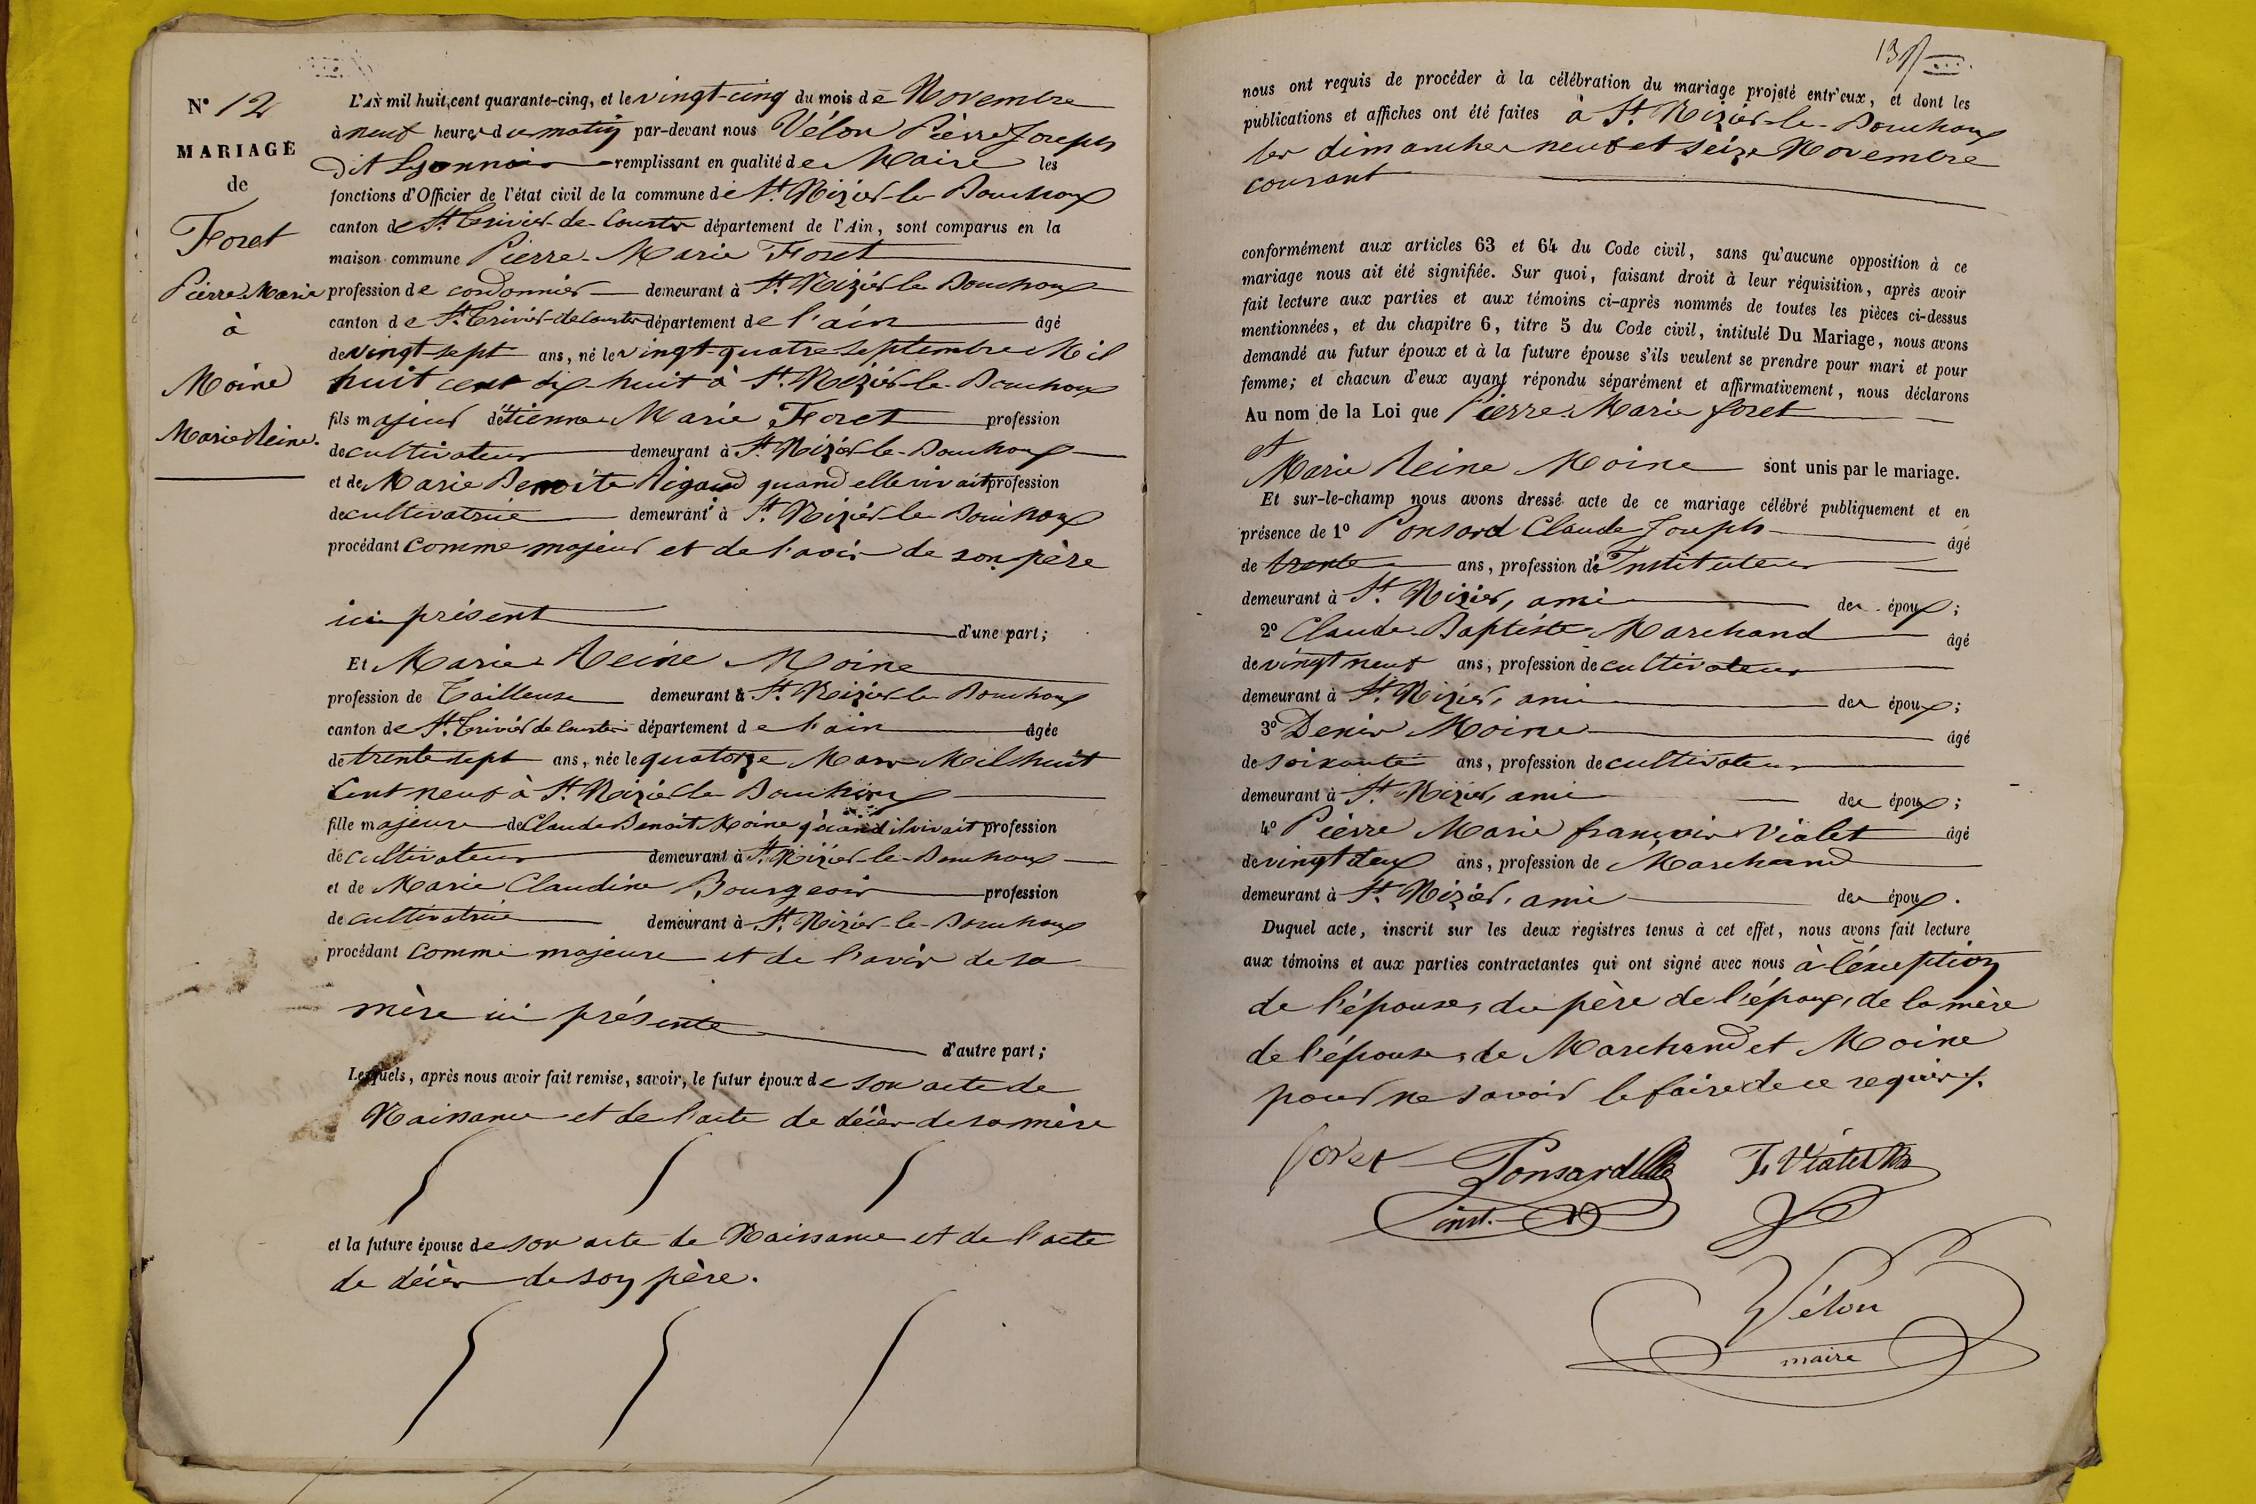 N° 12
MARIAGE
de
Foret
Pierre Marie
à
Moine
Marie Reine.
L'AN mil huit cent quarante-cinq, et le vingt-cinq du mois de Novembre
à neuf heures du matin par-devant nous Vélon Pièrre Joseph
dit Lyonnais remplissant en qualité de Maire les
fonctions d'Officier de l'état civil de la commune de St. Nizier-le-Bouchoux
canton de St. Trivier-de-Courtes département de l'Ain, sont comparus en la
maison commune Pierre-Marie Foret
profession de cordonnier demeurant à St. Nizier-le-Bouchoux
canton de St. Trivier-de Courtes département de l'ain âgé
de vingt-sept ans, né le vingt-quatre septembre Mil
huit cent dix huit à St. Nizier-le-Bouchoux
fils majeur détienne Marie Foret profession
de cultivateur demeurant à St. Nizier-le-Bouchoux
et de Marie Benoite Rigaud quand elle vivait profession
de cultivatrice demeurant à St. Nizier-le-Bouchoux
procédant comme majeur et de l'avis de son père
ici présent d'une part;
Et Marie Reine Moine
profession de Tailleuse demeurant à St. Nizier-le-Bouchoux
canton de St. Trivier de Courtes département de l'ain âgée
de trente sept ans, née le quatorze Mars Mil huit
Cent neuf à St. Nizier le Bouchoux
fille majeure de Claude Benoit Moine quand il vivait profession
de cultivateur demeurant à St. Nizier-le-Bouchoux
et de Marie Claudine Bourgeois profession
de cultivatrice demeurant à St. Nizier-le-Bouchoux
procédant comme majeure et de l'avis de sa
mère ici présente d'autre part;
Lesquels, après nous avoir fait remise, savoir, le futur époux de son acte de
Naissance et de l'acte de décès de sa mère
et la future épouse de son acte de Naissance et de l'acte
de décès de son père.
nous ont requis de procéder à la célébration du mariage projeté entr'eux, et dont les
publications et affiches ont été faites à St. Nizier-le-Bouchoux
les dimanches neuf et seize Novembre
courant
conformément aux articles 63 et 64 du Code civil, sans qu'aucune opposition à ce
mariage nous ait été signifiée. Sur quoi, faisant droit à leur réquisition, après avoir
fait lecture aux parties et aux témoins ci-après nommés de toutes les pièces ci-dessus
mentionnées, et du chapitre 6, titre 5 du Code civil, intitulé Du Mariage, nous avons
demandé au futur époux et à la future épouse s'ils veulent se prendre pour mari et pour
femme; et chacun d'eux ayant répondu séparément et affirmativement, nous déclarons
Au nom de la Loi que Pierre Marie foret
et
Marie Reine Moine sont unis par le mariage.
Et sur-le-champ nous avons dressé acte de ce mariage célébré publiquement et en
présence de 1° Ponsard Claude Joseph âgé
de trente ans, profession de Instituteur
demeurant à St. Nizier, ami des époux;
2° Claude-Baptiste Marchand âgé
de vingt neuf ans, profession de cultivateur
demeurant à St. Nizier, ami des époux;
3° Denis Moine âgé
de soixante ans, profession de cultivateur
demeurant à St. Nizier, ami des époux;
4° Pièrre Marie françois Vialet âgé
de vingt deux ans, profession de Marchand
demeurant à St. Nizier, ami des époux.
Duquel acte, inscrit sur les deux registres tenus à cet effet, nous avons fait lecture
aux témoins et aux parties contractantes qui ont signé avec nous à l'éxception
de l'épouse, du père de l'époux, de la mère
de l'épouse, de Marchand et Moine
pour ne savoir le faire de ce requis.
foret Ponsard F. Vialet
inst.
Vélon
maire